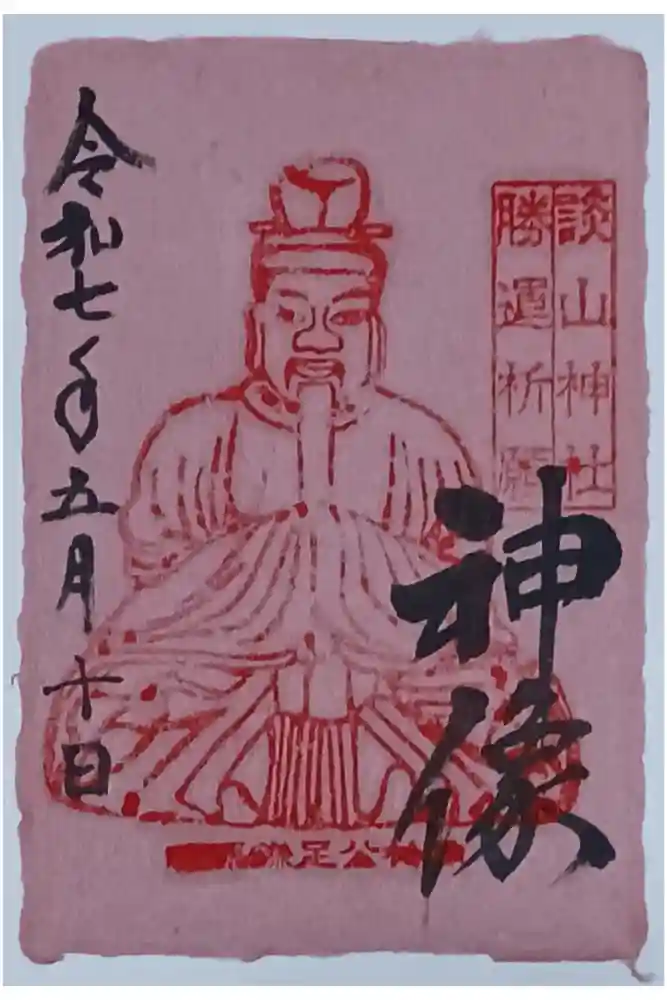 談山神社
勝運祈願
神像
令和七年五月十日
鎌足公